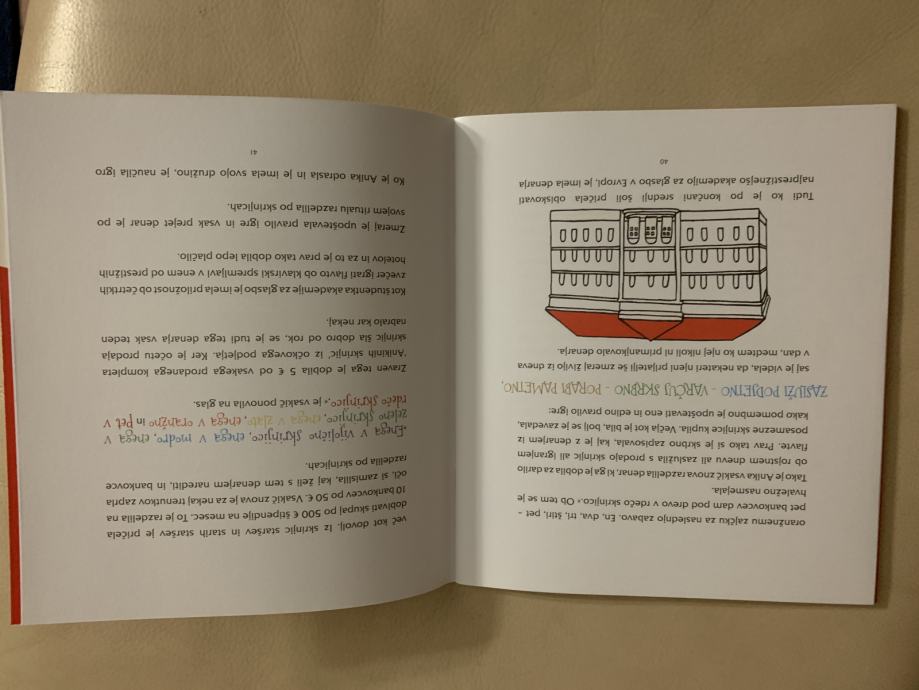 oranžnemu zajčku za naslednjo zabavo. En, dva, tri, štiri, pet –
pet bankovcev dam pod drevo v rdečo skrinjico.« Ob tem se je
hvaležno nasmejala.
Tako je Anika vsakič znova razdelila denar, ki ga je dobila za darilo
ob rojstnem dnevu ali zaslužila s prodajo skrinjic ali igranjem
flavte. Prav tako si je skrbno zapisovala, kaj z denarjem iz
posamezne skrinjice kupila. Večja kot je bila, bolj se je zavedala,
kako pomembno je upoštevati eno in edino pravilo igre:
ZASLUŽI PODJETNO – VARČUJ SKRBNO – PORABI PAMETNO,
saj je videla, da nekateri njeni prijatelji še zmeraj živijo iz dneva
v dan, medtem ko njej nikoli ni primanjkovalo denarja.
Tudi ko je po končani srednji šoli pričela obiskovati
najprestižnejšo akademijo za glasbo v Evropi, je imela denarja
40
več kot dovolj. Iz skrinjic staršev in starih staršev je pričela
dobivati skupaj po 500 € štipendije na mesec. To je razdelila na
10 bankovcev po 50 €. Vsakič znova je za nekaj trenutkov zaprla
oči, si zamislila, kaj želi s tem denarjem narediti, in bankovce
razdelila po skrinjicah.
»Enega v vijolično skrinjico, enega v modro, enega v
zeleno skrinjico, enega v zlato, enega v oranžno in pet v
rdečo skrinjico,« je vsakič ponovila na glas.
Zraven tega je dobila 5 € od vsakega prodanega kompleta
'Anikinih skrinjic' iz očkovega podjetja. Ker je očetu prodaja
skrinjic šla dobro od rok, se je tudi tega denarja vsak teden
nabralo kar nekaj.
Kot študentka akademije za glasbo je imela priložnost ob četrtkih
zvečer igrati flavto ob klavirski spremljavi v enem od prestižnih
hotelov in za to je prav tako dobila lepo plačilo.
Zmeraj je upoštevala pravilo igre in vsak prejet denar je po
svojem ritualu razdelila po skrinjicah.
Ko je Anika odrasla in je imela svojo družino, je naučila igro
41